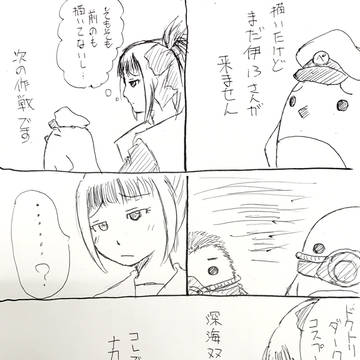 描いたけど
まだ伊13さんが
来ません
そもそも
前のも
描いてないし…
次の作戦です
………?
ドクトリ
ダーク
コスプ
深海双
コレで